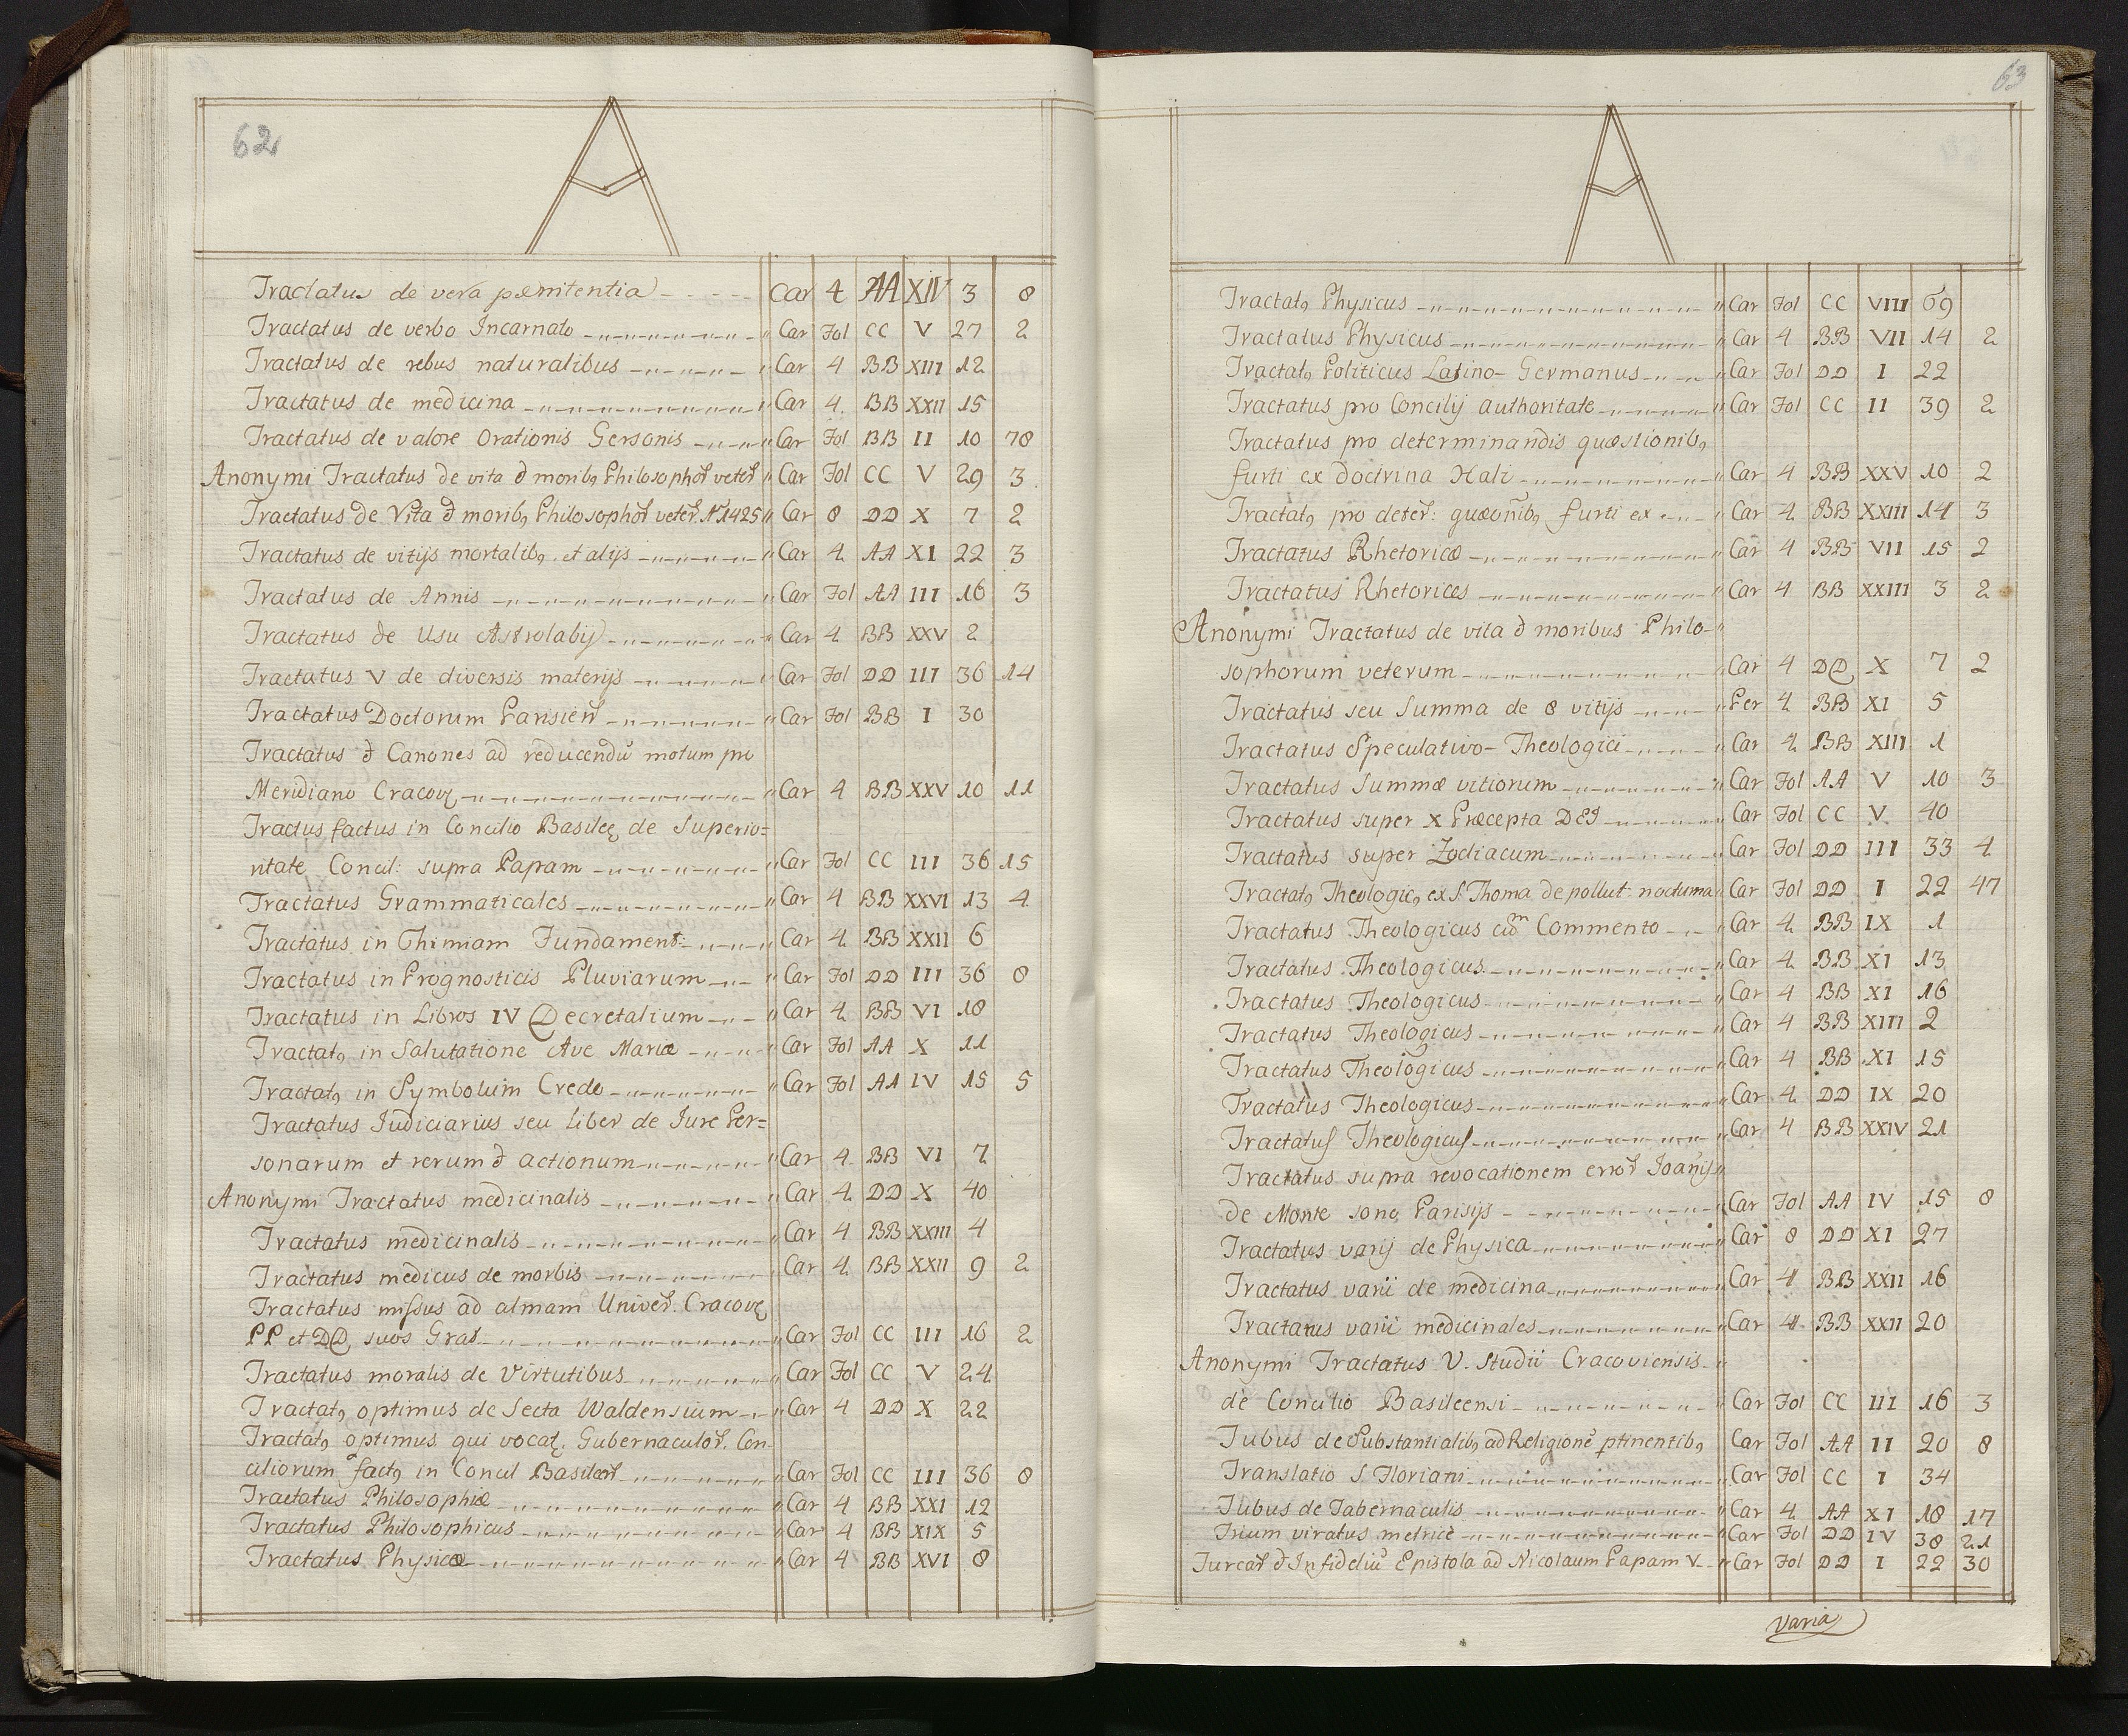 62
A
Tractatus de vera pœnitentia Car 4 AA XIV 3 8
Tractatus de verbo Incarnato Car Fol CC V 27 2
Tractatus de rebus naturalibus Car 4 BB XIII 12
Tractatus de medicina Car 4. BB XXII 15
Tractatus de valore Orationis Gersonis Car Fol BB II 10 78
Anonymi Tractatus de vita & morib9 Philosophor veter Car Fol CC V 29 3
Tractatus de Vita & morib9 Philosophor veter. 1425 Car 8 DD X 7 2
Tractatus de vitijs mortalib9 et alijs Car 4 AA XI 22 3
Tractatus de Annis Car Fol AA III 16 3
Tractatus de Usu Astrolabij Car 4 BB XXV 2
Tractatus V de diversis materijs Car Fol DD III 36 14
Tractatus Doctorum Parisien Car Fol BB I 30
Tractatus & Canones ad reducendū motum pro
Meridiano Cracov Car 4 BB XXV 10 11
Tractus factus in Concilio Basileę de Superio=
ritate Concil: supra Papam Car Fol CC III 36 15
Tractatus Grammaticales Car 4 BB XXVI 13 4
Tractatus in Thimiam Fundament: Car 4 BB XXII 6
Tractatus in Prognosticis Pluviarum Car Fol DD III 36 8
Tractatus in Libros IV Decretalium Car 4 BB VI 18
Tractat9 in Salutatione Ave Mariæ Car Fol AA X 11
Tractat9 in Symbolum Credo Car Fol AA IV 15 5
Tractatus Judiciarius seu Liber de Jure Per=
sonarum et rerum & actionum Car 4 BB VI 7
Anonymi Tractatus medicinalis Car 4 DD X 40
Tractatus medicinalis Car 4 BB XXIII 4
Tractatus medicus de morbis Car 4 BB XXII 9 2
Tractatus missus ad almam Univer. Cracov
PP et DD, suos Grat Car Fol CC III 16 2
Tractatus moralis de Virtutibus Car Fol CC V 24
Tractat9 optimus de Secta Waldensium Car 4 DD X 22
Tractat9 optimus qui vocat. Gubernaculor. Con-
ciliorum fact9 in Concil Basileen Car Fol CC III 36 8
Tractatus Philosophiæ Car 4 BB XXI 12
Tractatus Philosophicus Car 4 BB XIX 5
Tractatus Physicæ Car 4 BB XVI 8
63
A
Tractat9 Physicus Car Fol CC VIII 69
Tractatus Physicus Car 4 BB VII 14 2
Tractat9 Politicus Latino-Germanus Car Fol DD I 22
Tractatus pro Concilij authoritate Car Fol CC II 39 2
Tractatus pro determinandis quæstionib9
furti ex doctrina Hali Car 4 BB XXV 10 2
Tractat9 pro deter: quæonib9 furti ex Car 4 BB XXIII 14 3
Tractatus Rhetoricæ Car 4 BB VII 15 2
Tractatus Rhetorices Car 4 BB XXIII 3 2
Anonymi Tractatus de vita & moribus Philo-
sophorum veterum Car 4 DD X 7 2
Tractatus seu Summa de 8 vitijs Per 4 BB XI 5
Tractatus Speculativo-Theologici Car 4 BB XIII 1
Tractatus Summæ vitiorum Car Fol AA V 10 3
Tractatus super X Præcepta DEI Car Fol CC V 40
Tractatus super Zodiacum Car Fol DD III 33 4
Tractat9 Theologic9 ex S Thoma de pollut: nocturna Car Fol DD I 22 47
Tractatus Theologicus cum Commento Car 4 BB IX 1
Tractatus Theologicus Car 4 BB XI 13
Tractatus Theologicus Car 4 BB XI 16
Tractatus Theologicus Car 4 BB XIII 2
Tractatus Theologicus Car 4 BB XI 15
Tractatus Theologicus Car 4 DD IX 20
Tractatus Theologicus Car 4 BB XXIV 21
Tractatus supra revocationem error Joānis
de Monte sono Parisijs Car Fol AA IV 15 8
Tractatus varij de Physica Car 8 DD XI 27
Tractatus varii de medicina Car 4 BB XXII 16
Tractatus varii medicinales Car 4 BB XXII 20
Anonymi Tractatus V. Studii Cracoviensis
de Concilio Basileensi Car Fol CC III 16 3
Tubus de Substantialib9 ad Religionē ptinentib9 Car Fol AA II 20 8
Translatio S Floriani Car Fol CC I 34
Tubus de Tabernaculis Car 4 AA XI 18 17
Trium viratus metricè Car Fol DD IV 38 21
Turcar & Infideliū Epistola ad Nicolaum Papam V Car Fol DD I 22 30
Varia